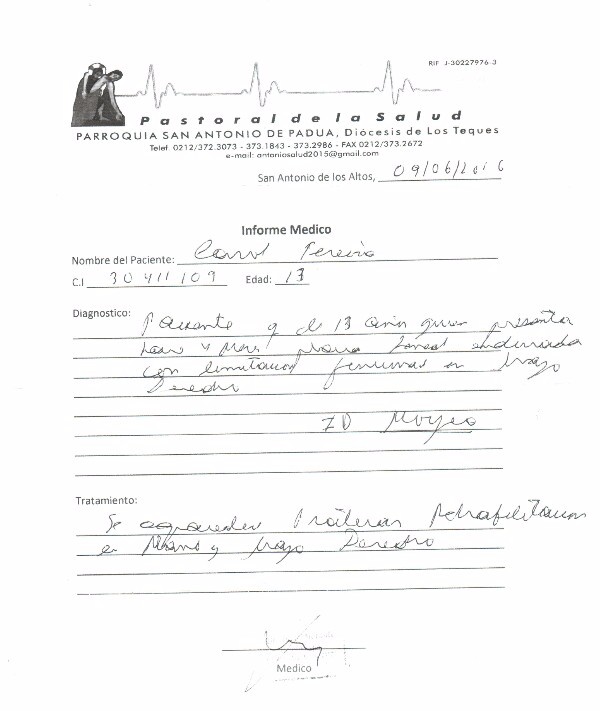 RIF J-30227976-3
Pastoral de la Salud
PARROQUIA SAN ANTONIO DE PADUA, Diócesis de Los Teques
Telef. 0212/372.3073 - 373.1843 - 373.2986 - FAX 0212/373.2672
e-mail: antoniosalud2015@gmail.com
San Antonio de los Altos, 09/06/2016
Informe Medico
Nombre del Paciente: Carol Pereira
C.I 30411109 Edad: 13
Diagnostico: Paciente de 13 años quien presenta
placa endurada
con limitacion en brazo
Derecho
ID
Tratamiento:
Se agradece Rehabilitacion
en Mano y brazo Derecho
Medico